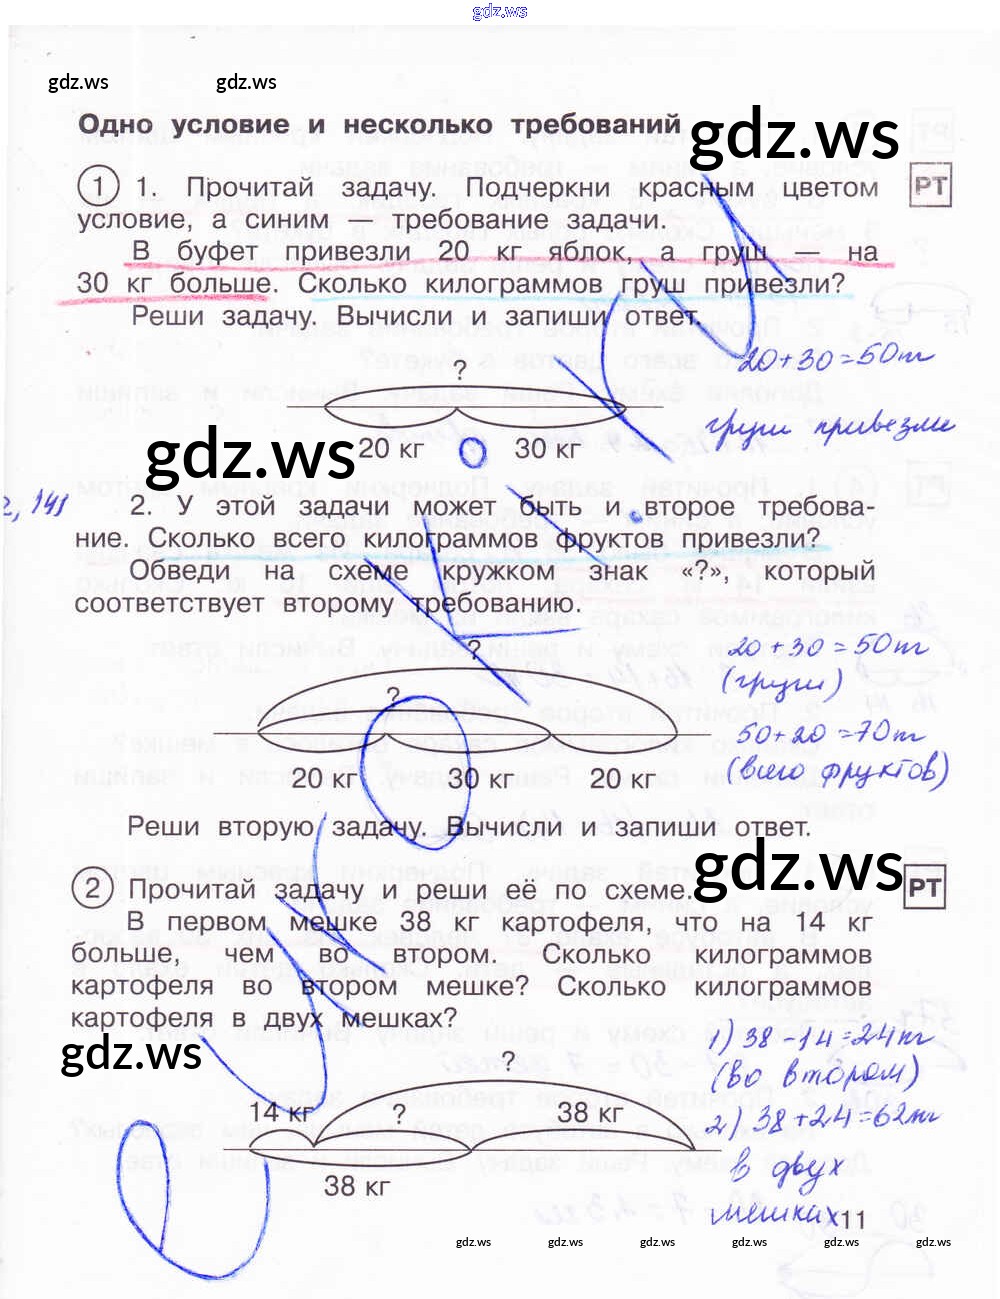 gdz.ws
gdz.ws gdz.ws
Одно условие и несколько требований
gdz.ws
1 1. Прочитай задачу. Подчеркни красным цветом РТ
условие, а синим — требование задачи.
В буфет привезли 20 кг яблок, а груш — на
30 кг больше. Сколько килограммов груш привезли?
Реши задачу. Вычисли и запиши ответ.
20+30=50кг
?
груш привезли
20 кг 30 кг
gdz.ws
2. У этой задачи может быть и второе требова-
ние. Сколько всего килограммов фруктов привезли?
Обведи на схеме кружком знак «?», который
соответствует второму требованию.
?
20+30=50кг
(груши)
?
50+20=70кг
(всего фруктов)
20 кг 30 кг 20 кг
Реши вторую задачу. Вычисли и запиши ответ.
gdz.ws
2 Прочитай задачу и реши её по схеме. РТ
В первом мешке 38 кг картофеля, что на 14 кг
больше, чем во втором. Сколько килограммов
картофеля во втором мешке? Сколько килограммов
картофеля в двух мешках?
gdz.ws
1) 38-14=24кг
(во втором)
?
14 кг ? 38 кг
2) 38+24=62кг
в двух
38 кг
мешках
11
gdz.ws gdz.ws gdz.ws gdz.ws gdz.ws gdz.ws